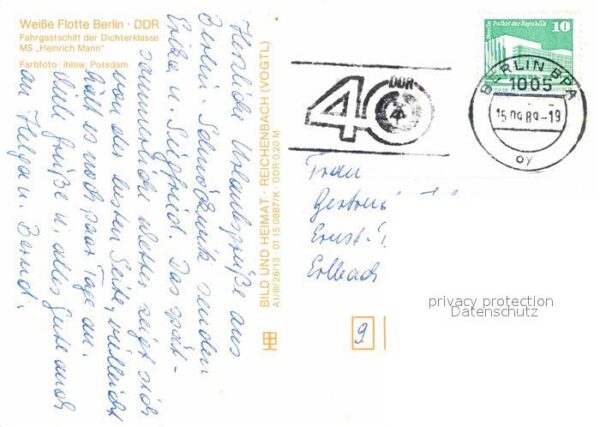 Weiße Flotte Berlin · DDR
Fahrgastschiff der Dichterklasse
MS „Heinrich Mann"
Farbfoto: Ihlow, Potsdam
Herzliche Urlaubsgrüße aus
Berlin-Schmöckwitz senden
Erika u. Siegfried. Das spät-
sommerliche Wetter zeigt sich
von der besten Seite, vielleicht
hält es noch paar Tage an.
Viele Grüße u. alles Gute auch
an Helga u. Bernd.
BILD UND HEIMAT · REICHENBACH (VOGTL)
A1/III/26/13 · 01 15 0687/K · DDR 0,20 M
40
DDR
10
Palast der Republik
BERLIN BPA
1005
15.09.89-19
oy
Frau
Gertrud
Ernst
Erlbach
9
privacy protection
Datenschutz